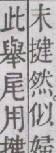 未揵然似婦
此舉尾用揵